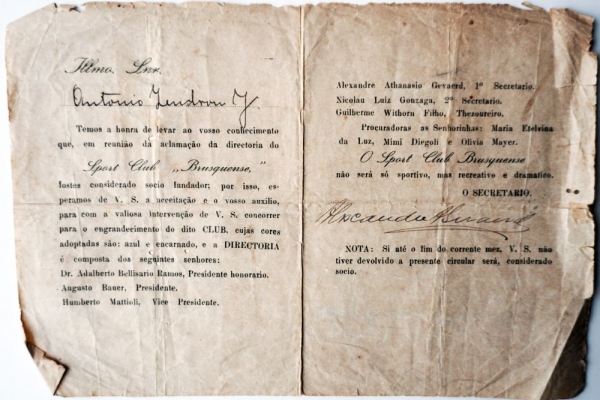 Illmo. Snr.
Antonio
Temos a honra de levar ao vosso conhecimento
que, em reunião da aclamação da directoria do
Sport Club „Brusquense,”
fostes considerado socio fundador; por isso, es-
peramos de V. S. a acceitação e o vosso auxilio,
para com a valiosa intervenção de V. S. concorrer
para o engrandecimento do dito CLUB, cujas cores
adoptadas são: azul e encarnado, e a DIRECTORIA
é composta dos seguintes senhores:
Dr. Adalberto Bellisario Ramos, Presidente honorario.
Augusto Bauer, Presidente.
Humberto Mattioli, Vice Presidente.
Alexandre Athanasio Gevaerd, 1º Secretario.
Nicolau Luiz Gonzaga, 2º Secretario.
Guilherme Withorn Filho, Thezoureiro.
Procuradoras as Senhorinhas: Maria Etelvina
da Luz, Mimi Diegoli e Olivia Mayer.
O Sport Club Brusquense
não será só sportivo, mas recreativo e dramatico.
O SECRETARIO.
Alexandre Gevaerd
NOTA: Si até o fim do corrente mez, V. S. não
tiver devolvido a presente circular será, considerado
socio.